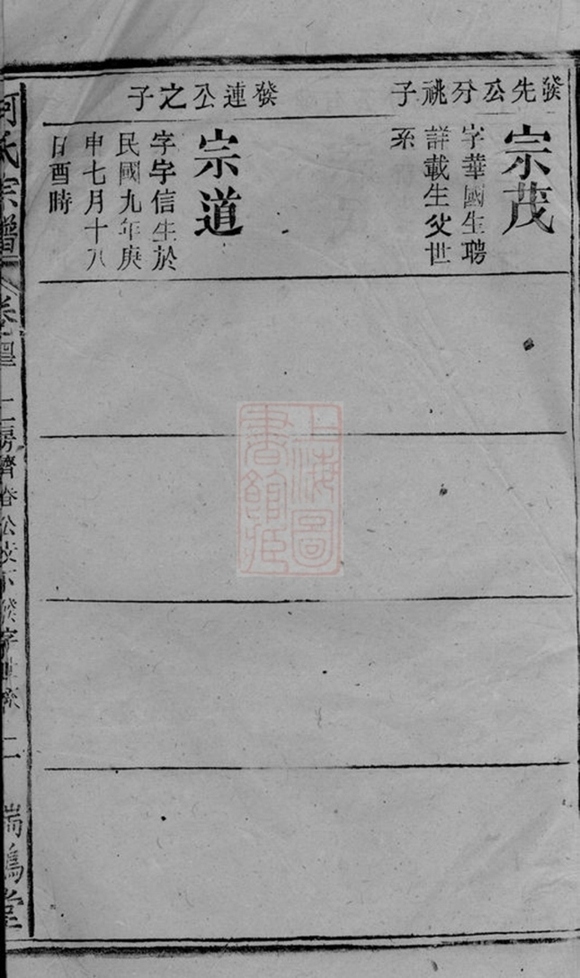 發先公分祧子
宗茂
字華國生聘
詳載生父世
系
發連公之子
宗道
字孚信生於
民國九年庚
申七月十八
日酉時
氏宗譜
二房濟春公支下發字世系 二
瑞鵲堂
上海圖書館藏